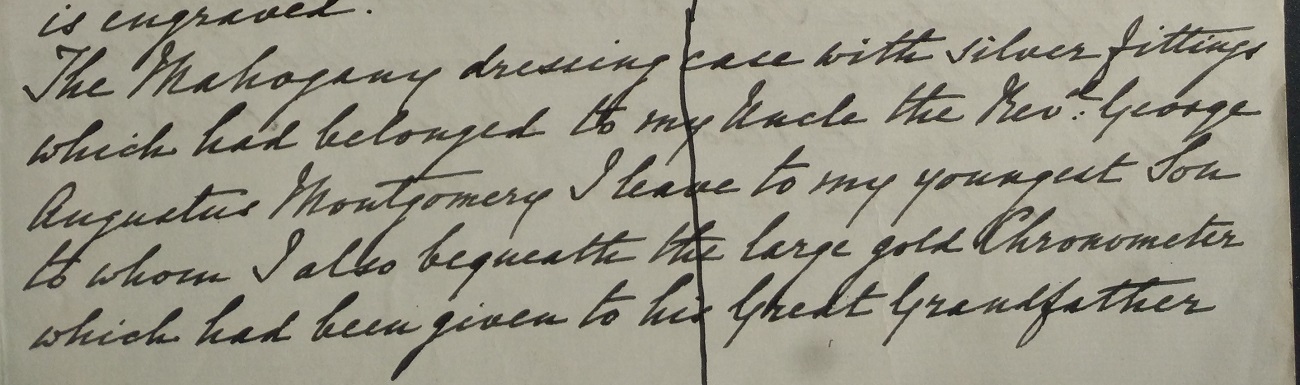 is engraved.
The Mahogany dressing case with silver fittings
which had belonged to my Uncle the Revd. George
Augustus Montgomery I leave to my youngest Son
to whom I also bequeath the large gold Chronometer
which had been given to his Great Grandfather